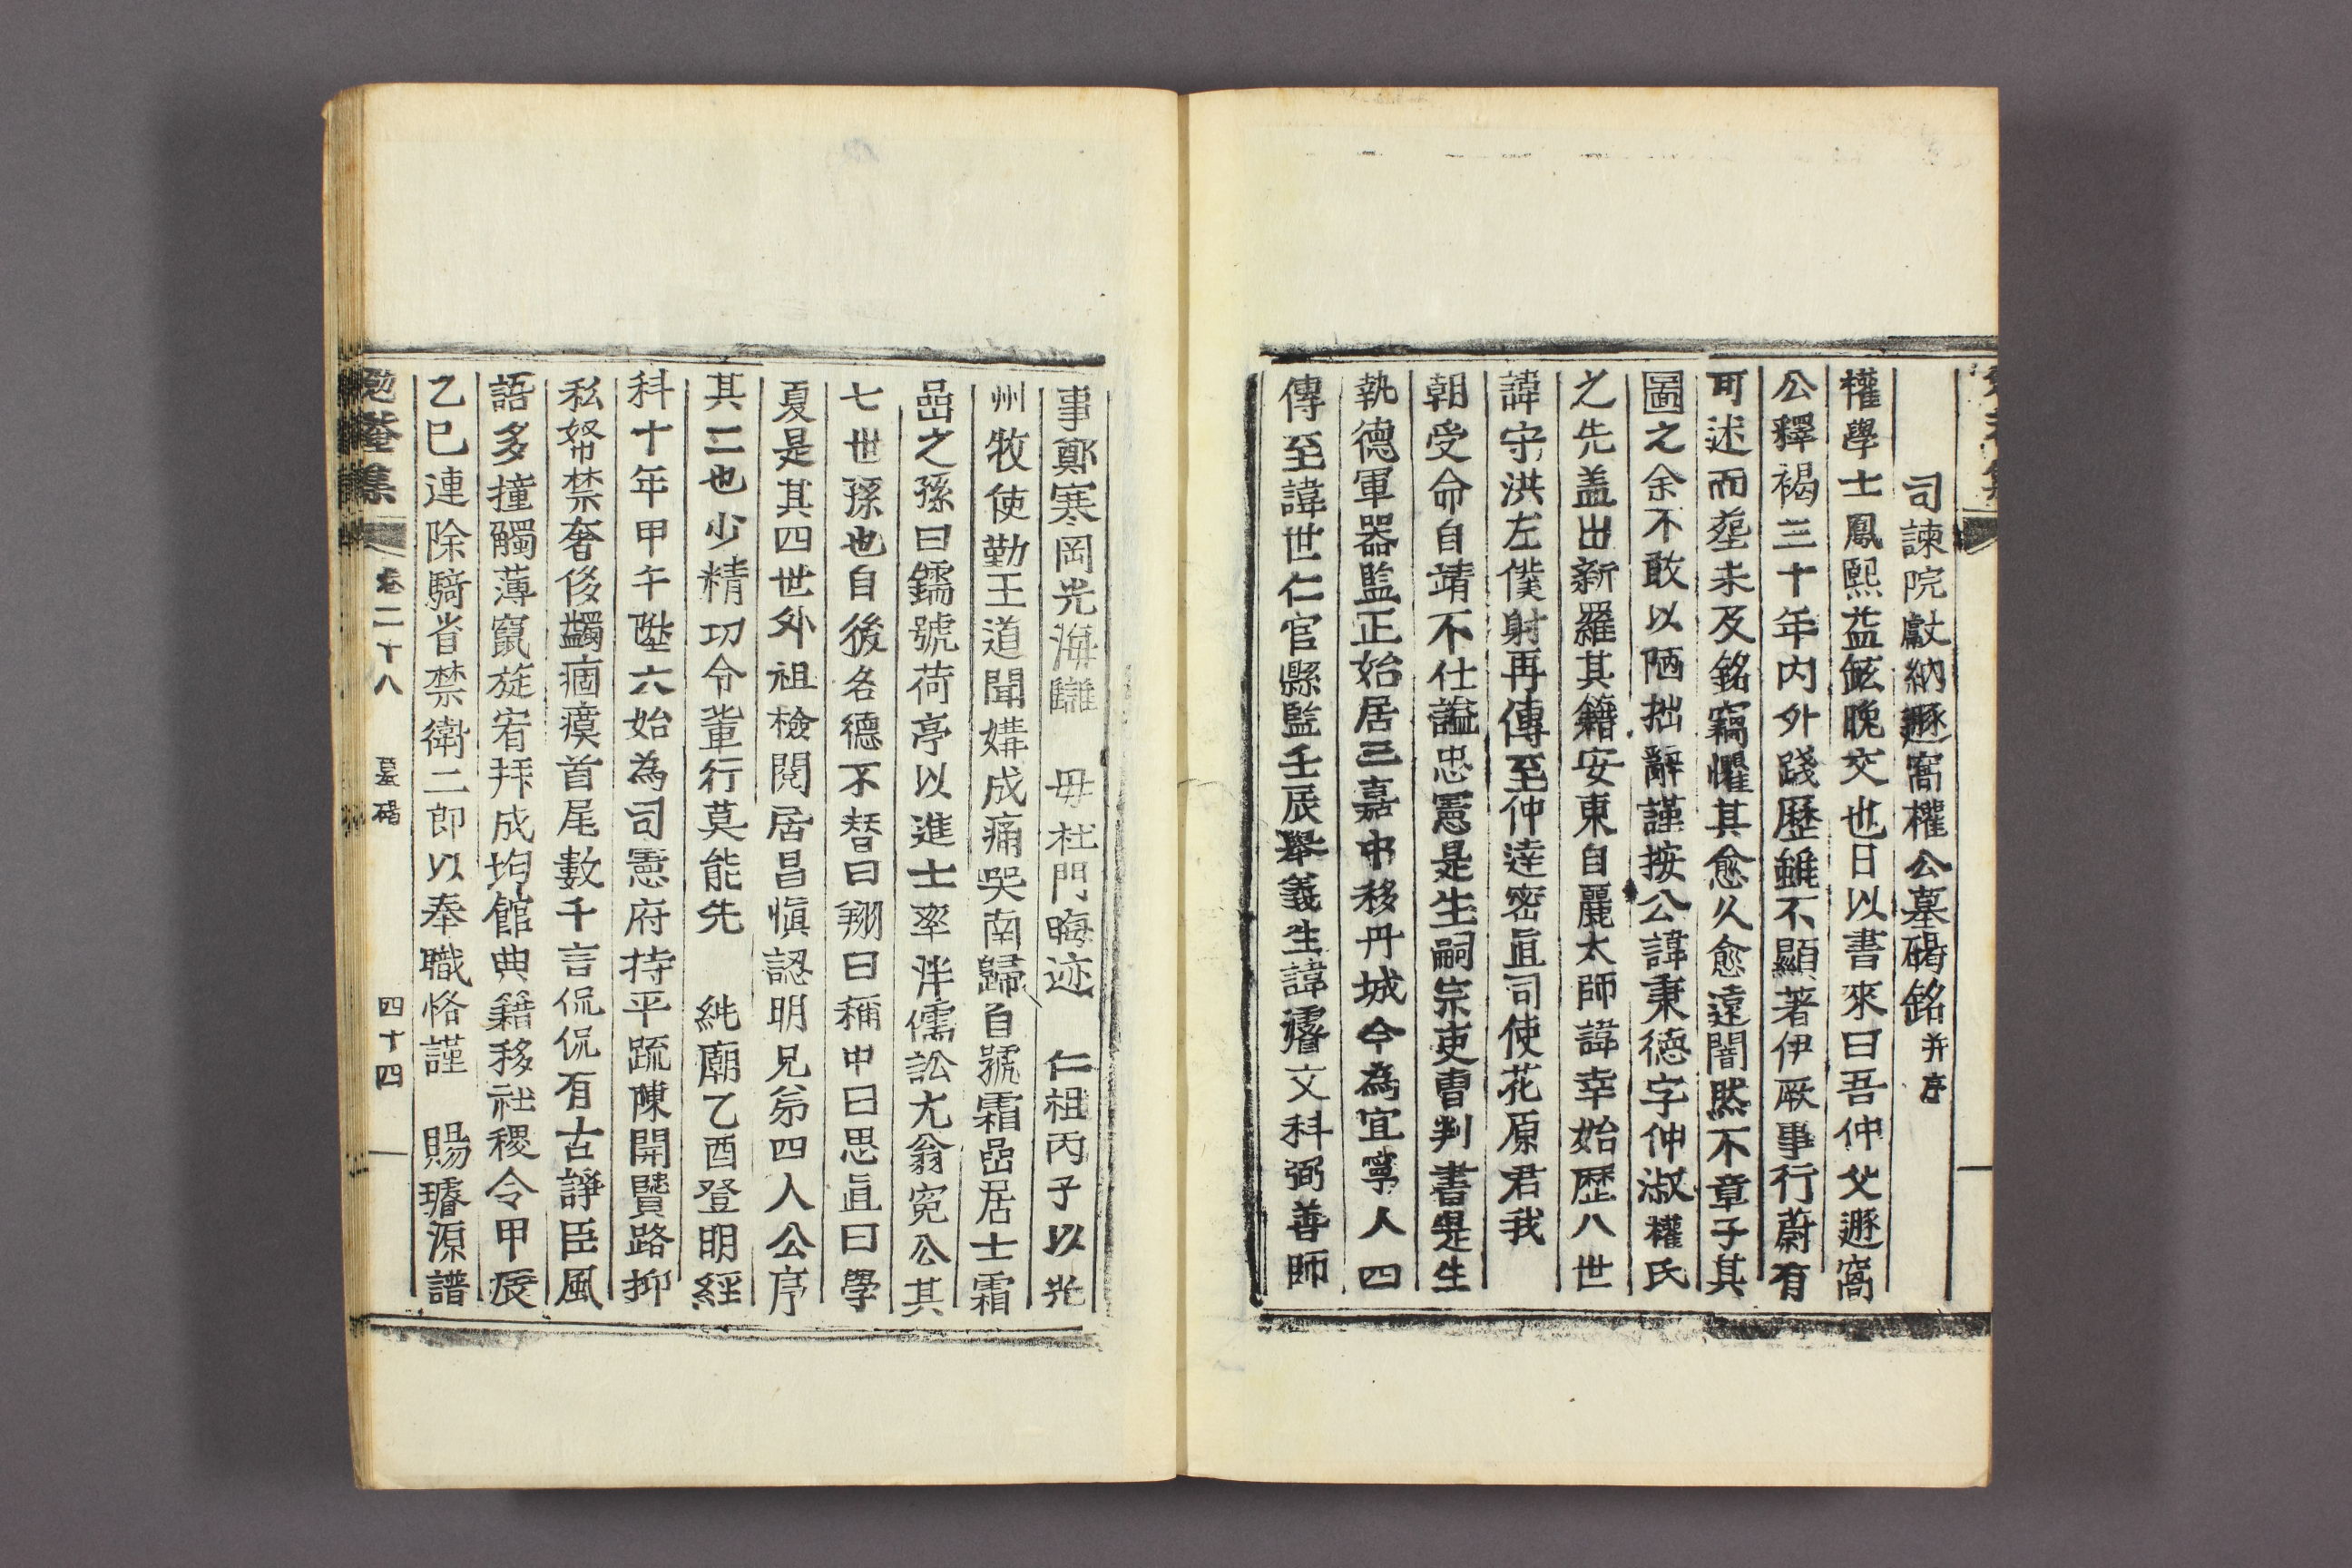 司諫院獻納遯窩權公墓碣銘 并序
權學士鳳熙益鉉晚交也日以書來曰吾仲父遯窩
公釋褐三十年內外踐歷雖不顯著伊厥事行蔚有
可述而塋未及銘竊懼其愈久愈遠闇然不章子其
圖之余不敢以陋拙辭謹按公諱秉德字仲淑權氏
之先盖出新羅其籍安東自麗太師諱幸始歷八世
諱守洪左僕射再傳至仲達密直司使花原君我
朝受命自靖不仕謚忠憲是生嗣宗吏曹判書是生
執德軍器監正始居三嘉中移丹城今為宜寧人四
傳至諱世仁官縣監壬辰擧義生諱濬文科弼善師
事鄭寒岡光海讎 母杜門晦迹 仁祖丙子以光
州牧使勤王道聞媾成痛哭南歸自號霜嵒居士霜
嵒之孫曰鑐號荷亭以進士率泮儒訟尤翁寃公其
七世孫也自後各德不替曰翔曰稱中曰思直曰學
夏是其四世外祖檢閱居昌愼認明兄弟四人公序
其二也少精功令輩行莫能先 純廟乙酉登明經
科十年甲午陞六始為司憲府持平疏陳開賢路抑
私帑禁奢侈蠲痼瘼首尾數千言侃侃有古諍臣風
語多撞觸薄竄旋宥拜成均館典籍移社稷令甲辰
乙巳連除騎省禁衛二郎以奉職恪謹 賜璿源譜
勉菴集 卷二十八 墓碣 四十四